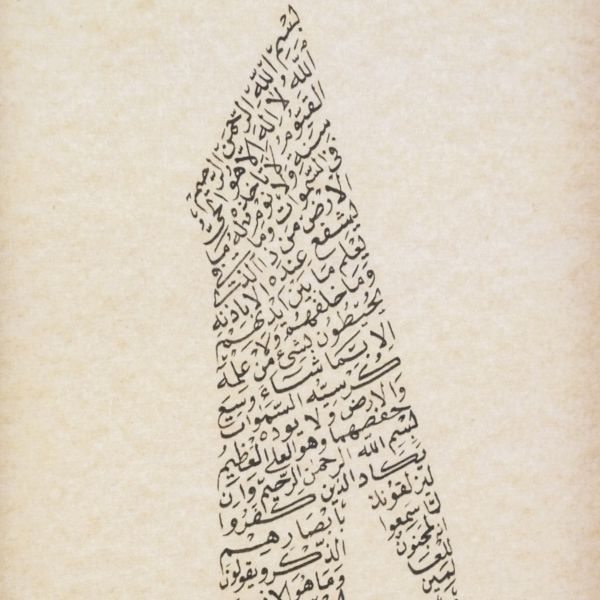 بسم الله الرحمن الرحيم
الله لا اله الا هو الحي
القيوم لا تأخذه
سنة ولا نوم له ما
في السموات وما في
الارض من ذا الذي
يشفع عنده الا باذنه
يعلم ما بين ايديهم
وما خلفهم ولا
يحيطون بشئ من علمه
الا بما شاء وسع
كرسيه السموات
والارض ولا يوده
حفظهما وهو العلي العظيم
بسم الله الرحمن الرحيم وان
يكاد الذين كفروا
ليزلقونك بأبصارهم
لما سمعوا الذكر ويقولون
لمجنون وما هو الا
للعا
لمين